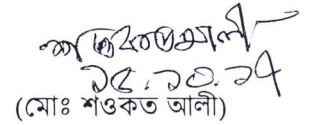 ১৫.১০.১৭
(মোঃ শওকত আলী)